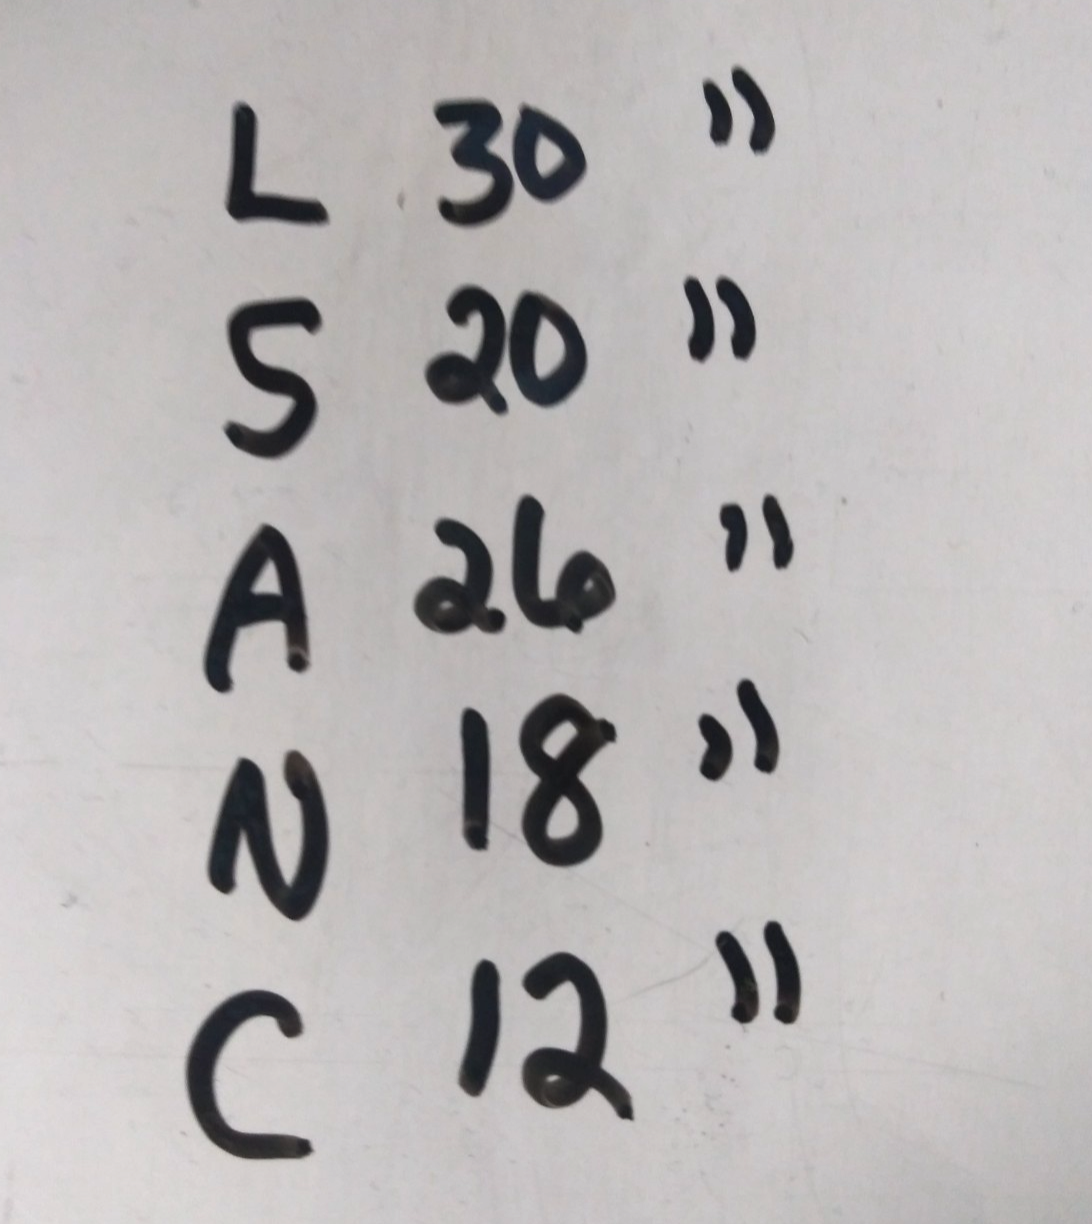 L 30 "
S 20 "
A 26 "
N 18 "
C 12 "